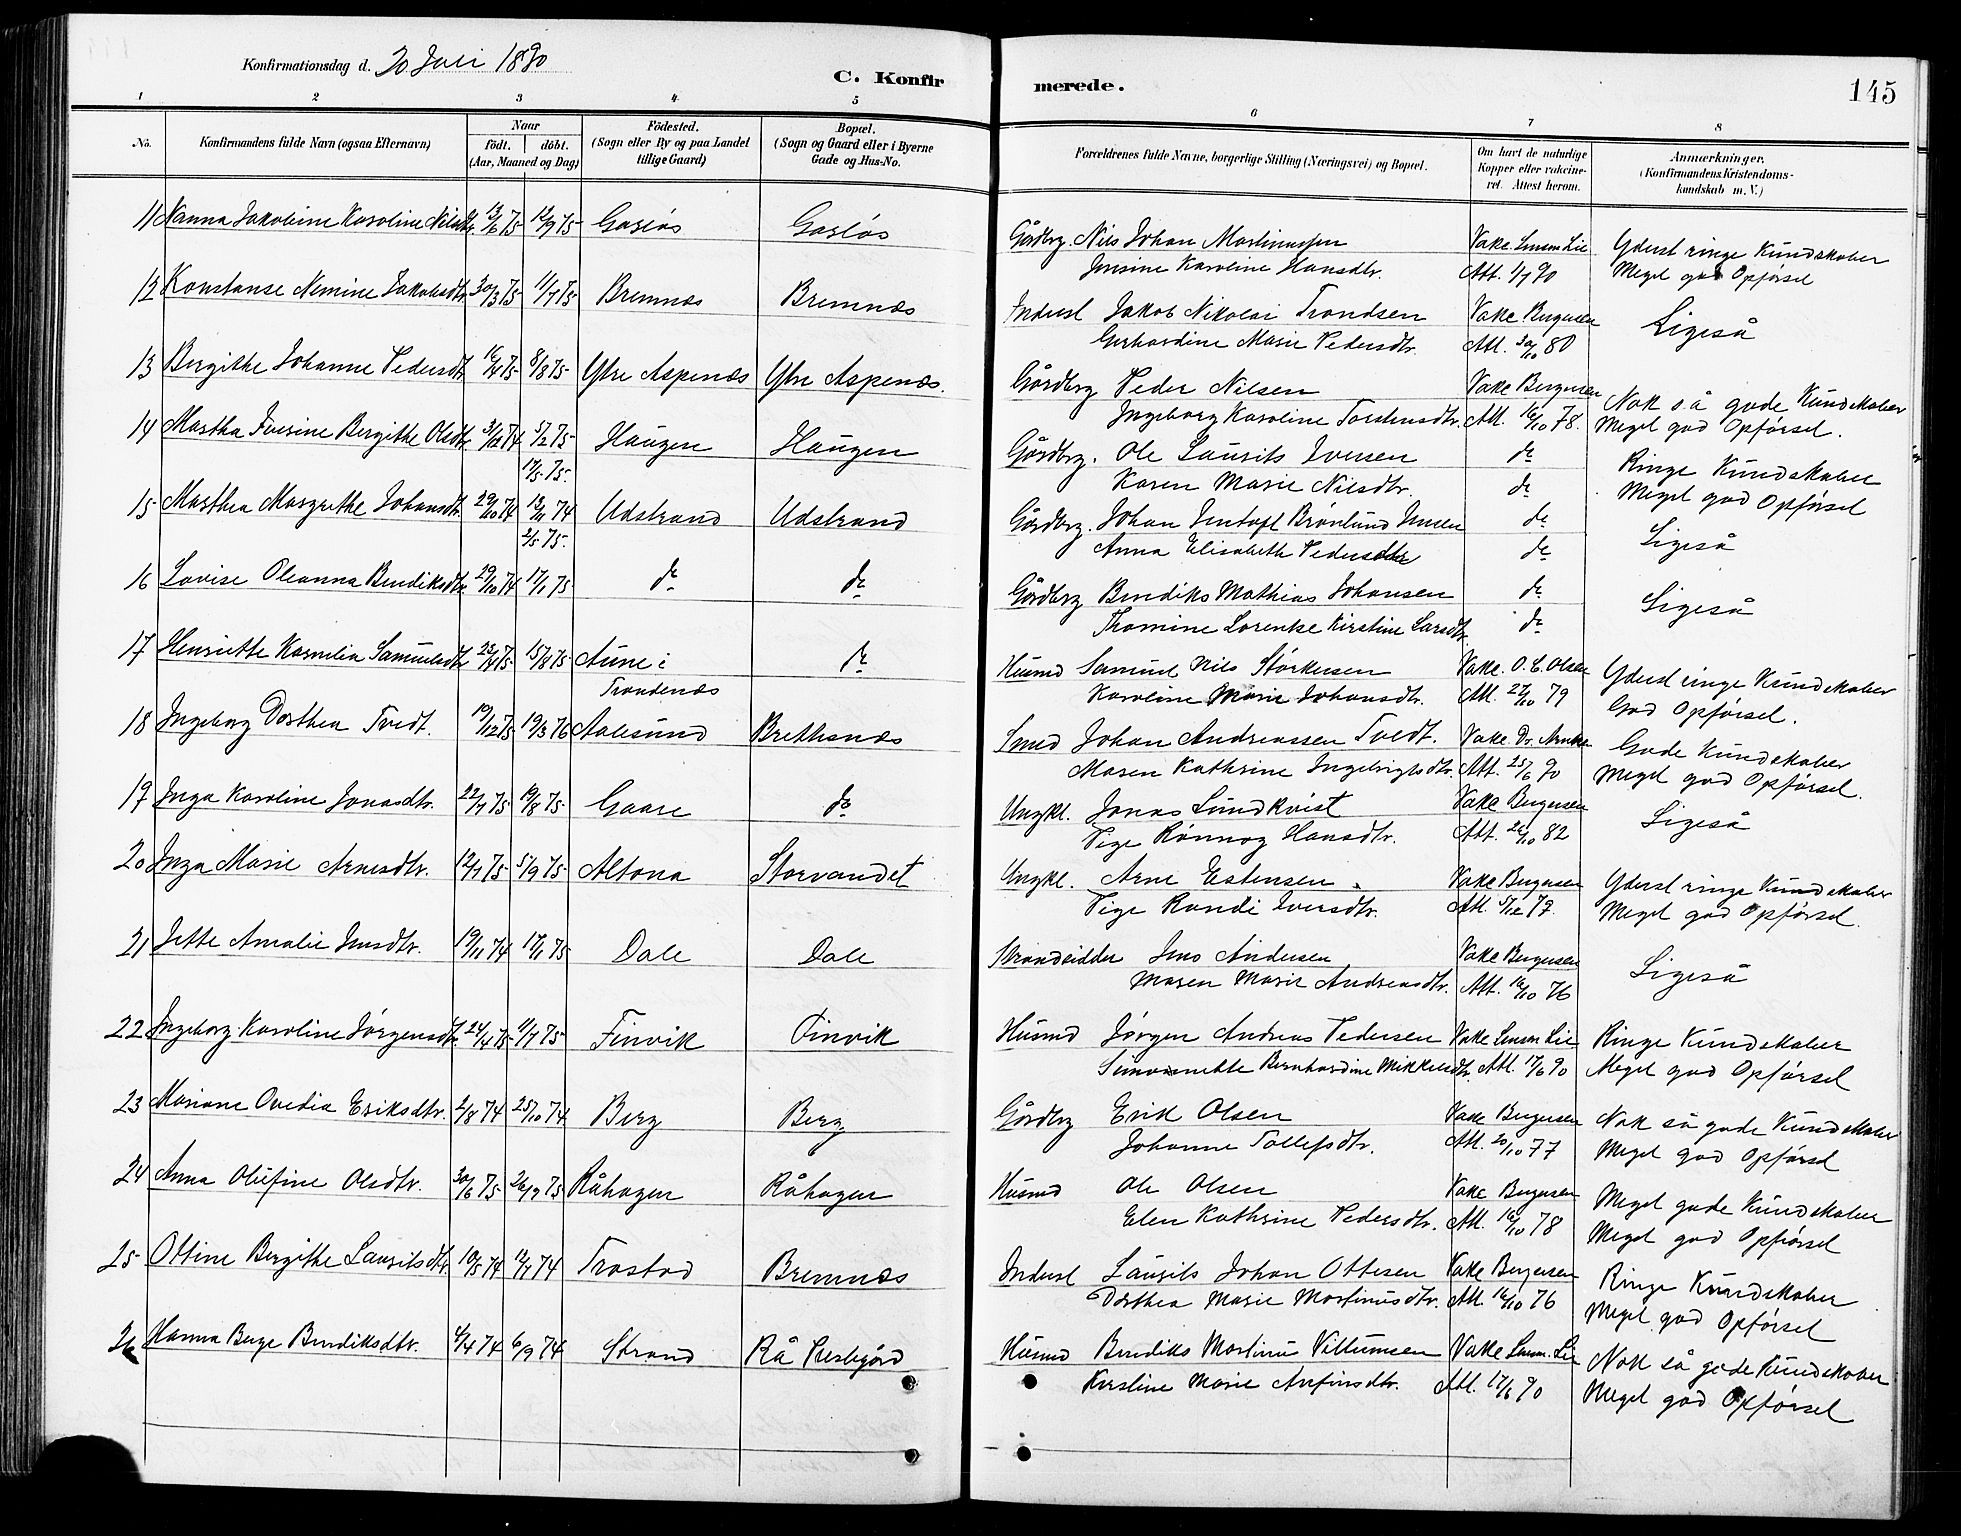 Konfirmationsdag d. 20 Juli 1890
C. Konfirmerede.
145
1 2 3 4 5 6 7 8
No.
Konfirmandens fulde Navn (ogsaa Efternavn)
Naar
födt. döbt.
(Aar, Maaned og Dag)
Födested.
(Sogn eller By og paa Landet
tillige Gaard)
Bopæl.
(Sogn og Gaard eller i Byerne
Gade og Hus-No.
Forældrenes fulde Navne, borgerlige Stilling (Næringsvei) og Bopæl.
Om havt de naturlige
Kopper eller vakcine-
ret. Attest herom.
Anmærkninger.
(Konfirmandens Kristendoms-
kundskab m. V.)
11 Nanna Jakobine Karoline Nilsdtr. 13/6 75 12/9 75 Gasløs Gasløs Gårdbrg. Nils Johan Martinussen Vakc. Lensm Lie Yderst ringe Kundskaber
Jensine Karoline Hansdtr. Att. 1/7 90 Meget god Opførsel
12 Konstanse Nemine Jakobsdtr 30/3 75 11/7 75 Bremnæs Bremnæs Inderst Jakob Nikolai Trondsen Vakc Bergersen Ligeså
Gerhardine Marie Pedersdtr. Att. 30/10 80
13 Bergithe Johanne Pedersdtr 16/4 75 8/8 75 Ytre Aspenæs Ytre Aspenæs. Gårdbrg Peder Nilsen Vakc Bergersen Nok så gode Kundskaber
Ingeborg Karoline Torstensdtr. Att. 16/10 78. Meget god Opførsel.
14 Martha Iversine Bergithe Olsdtr. 31/12 74 5/2 75 Haugen Haugen Gårdbrg. Ole Laurits Iversen do Ringe Kundskaber
17/5 75. Karen Marie Nilsdtr. do Meget god Opførsel
15 Marthea Margrethe Johansdtr. 29/10 74 13/11 74 Udstrand Udstrand Gårdbrg. Johan Jentoft Brønlund Jensen do Ligeså
2/5 75. Anna Elisabeth Pedersdtr do
16 Lovise Oleanna Bendiksdtr. 29/10 74 17/1 75 do do Gårdbrg Bendiks Mathias Johansen do Ligeså
Tromine Lorentse Kirstine Larsdtr. do
17 Henriette Kornelia Samuelsdtr 23/4 75 15/8 75 Aune i do Husmd Samuel Nils Størkersen Vakc. O. C. Olsen Yderst ringe Kundskaber
Trondenæs Karoline Marie Johansdtr. Att. 22/10 79 God Opførsel.
18 Ingeborg Dorthea Tvedt. 19/12 75 19/3 76 Aalesund Brethsnæs Smed Johan Andreassen Tvedt. Vakc. Dr. Gode Kundskaber
Maren Kathrine Ingebrigtsdtr. Att. 25/6 90 Meget god Opførsel.
19 Inga Karoline Jonasdtr. 22/7 75 19/8 75 Gaare do Ungkl. Jonas Lundkvist Vakc Bergersen Ligeså
Pige Rønnog Hansdtr. Att. 26/10 82
20 Inga Marie Arnesdtr. 12/7 75 5/9 75 Altona Storvandet Ungkl. Arne Estensen. Vakc Bergersen Yderst ringe Kundskaber
Pige Randi Iversdtr. Att. 5/12 79. Meget god Opførsel.
21 Jette Amalie Jensdtr. 19/11 74 17/1 75 Dale Dale Strandsidder Jens Andersen Vakc Bergersen Ligeså
Maren Marie Andreasdtr. Att. 16/10 76
22 Ingeborg Karoline Jørgensdtr. 24/4 75 11/7 75 Finvik Finvik Husmd Jørgen Andreas Pedersen Vakc Lensm Lie Ringe Kundskaber
Simonette Bernhardine Mikkelsdtr. Att. 17/6 90 Meget god Opførsel
23 Mariane Ovedia Eriksdtr. 2/8 74 25/10 74 Berg Berg Gårdbrg Erik Olsen Vakc Bergersen Nok så gode Kundskaber
Johanne Tollefsdtr. Att. 20/10 77 Meget god Opførsel
24 Anna Olufine Olsdtr. 30/6 75 26/9 75 Råhagen Råhagen Husmd Ole Olsen Vakc Bergersen Meget gode Kundskaber
Elen Kathrine Pedersdtr. Att. 16/10 78 Meget god Opførsel
25 Ottine Bergithe Lauritsdtr. 10/5 74 12/7 74 Trastad Bremnæs Inderst Laurits Johan Ottesen Vakc Bergersen Ringe Kundskaber
Dorthea Marie Martinusdtr. Att. 16/10 76 Meget god Opførsel
26 Hanna Berge Bendiksdtr. 4/4 74 6/9 74 Strand Rå Prestegård Husmd Bendiks Martinus Villumsen Vakc Lensm. Lie Nok så gode Kundskaber
Kirstine Marie Arfinsdtr. Att. 17/6 90 Meget god Opførsel